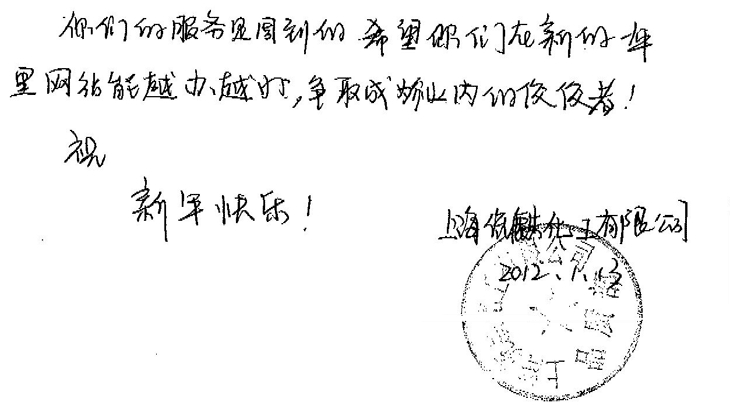 你们的服务是周到的 希望你们在新的一年
里网站能越办越好,争取成为业内的佼佼者!
祝
新年快乐!
上海 化工有限公司
2012.1.13